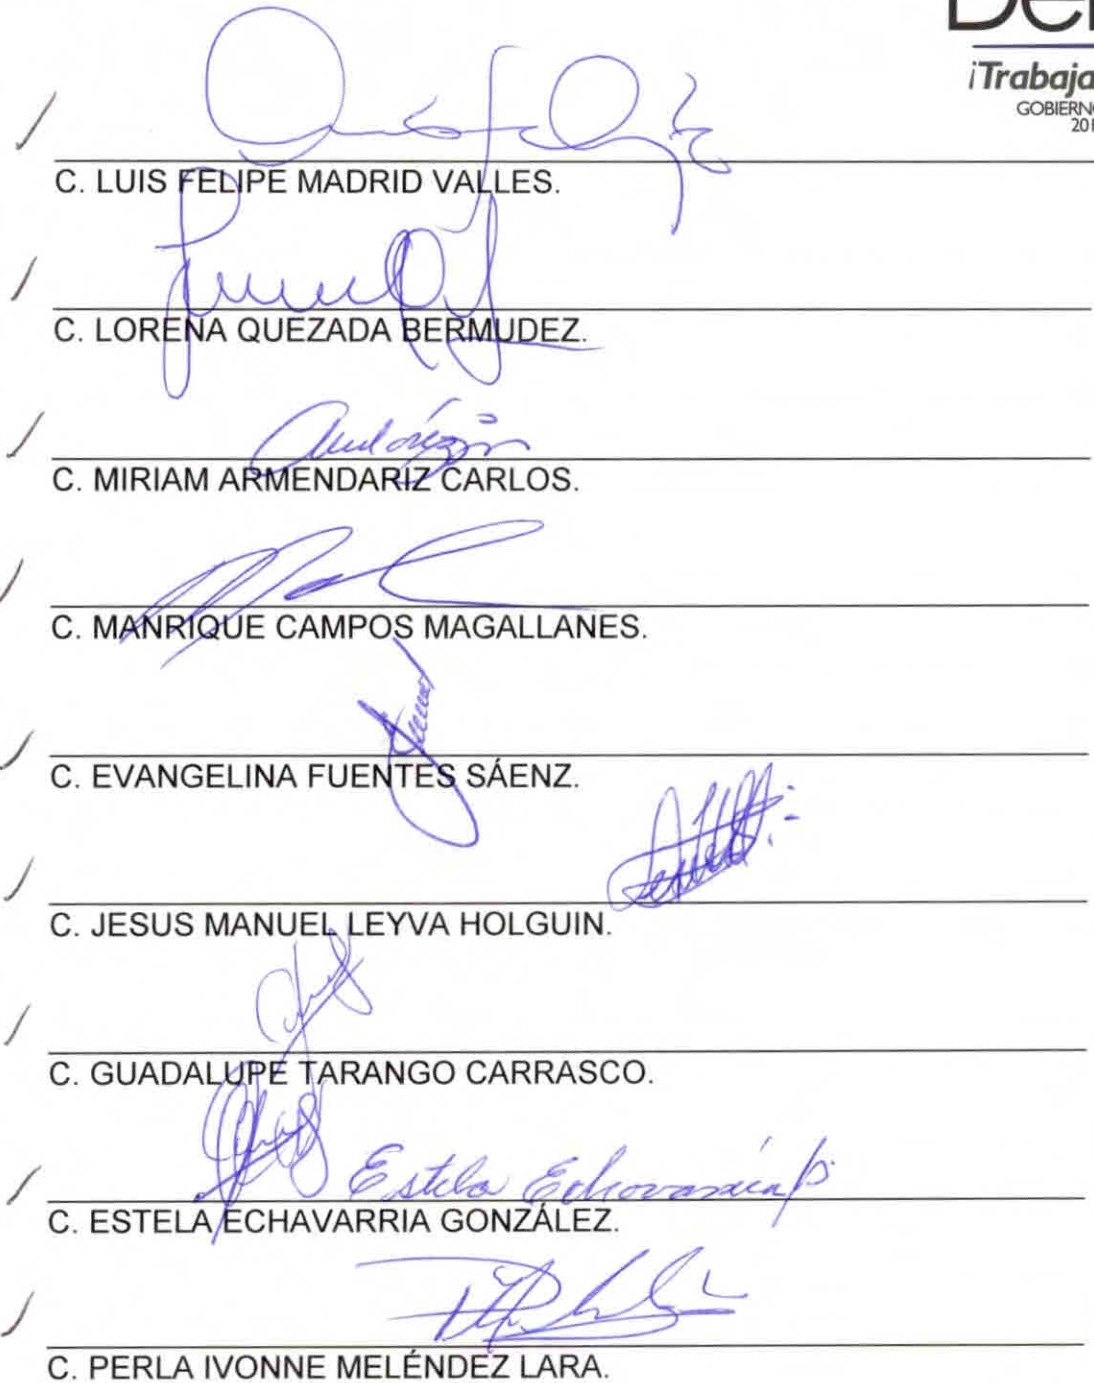 ¡Trabaja
GOBIERNO
201
C. LUIS FELIPE MADRID VALLES.
C. LORENA QUEZADA BERMUDEZ.
C. MIRIAM ARMENDARIZ CARLOS.
C. MANRIQUE CAMPOS MAGALLANES.
C. EVANGELINA FUENTES SÁENZ.
C. JESUS MANUEL LEYVA HOLGUIN.
C. GUADALUPE TARANGO CARRASCO.
Estela Echavarria
C. ESTELA ECHAVARRIA GONZÁLEZ.
C. PERLA IVONNE MELÉNDEZ LARA.